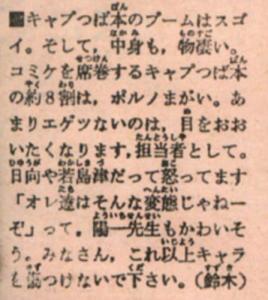 ■キャプつば本のブームはスゴ
イ。そして，中身も，物凄い。
コミケを席巻するキャプつば本
の約８割は，ポルノまがい。あ
まりエゲツないのは，目をおお
いたくなります，担当者として。
日向や若島津だって怒ってます
「オレ達はそんな変態じゃねー
ぞ」って，陽一先生もかわいそ
う。みなさん，これ以上キャラ
を傷つけないで下さい。（鈴木）